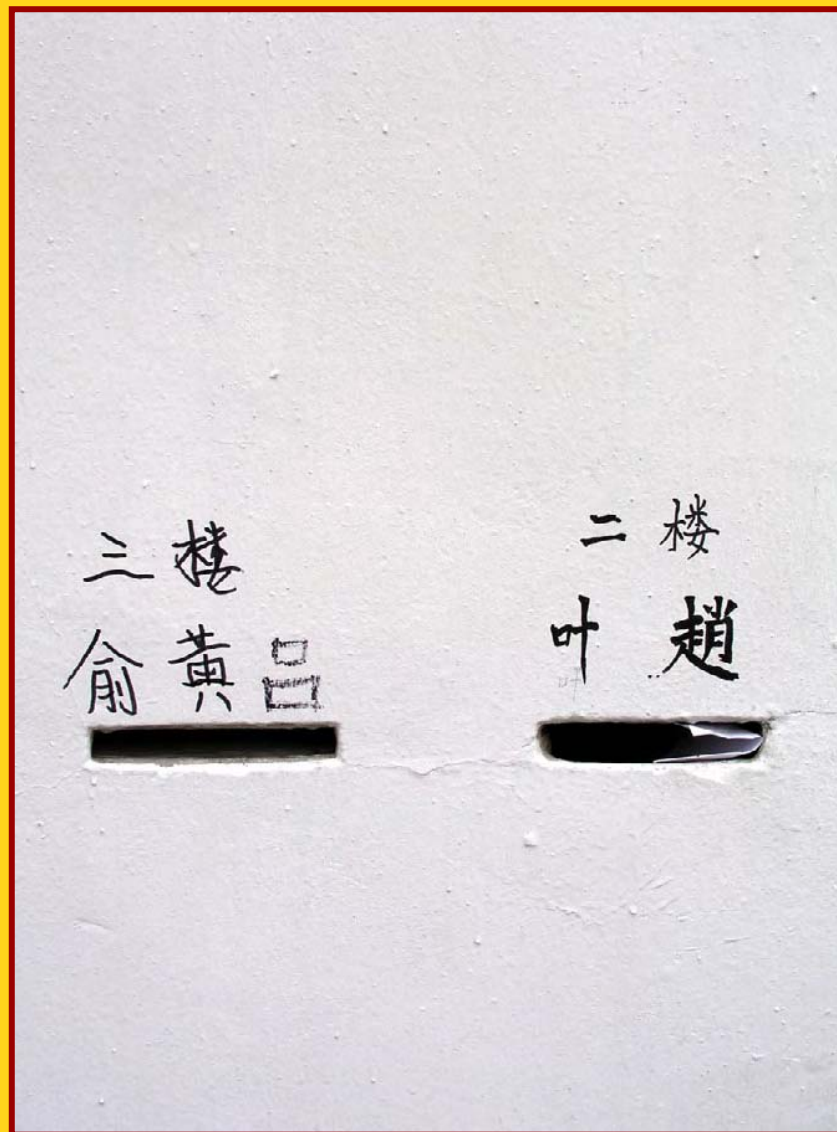 三楼
俞黃吕
二楼
叶趙
叶